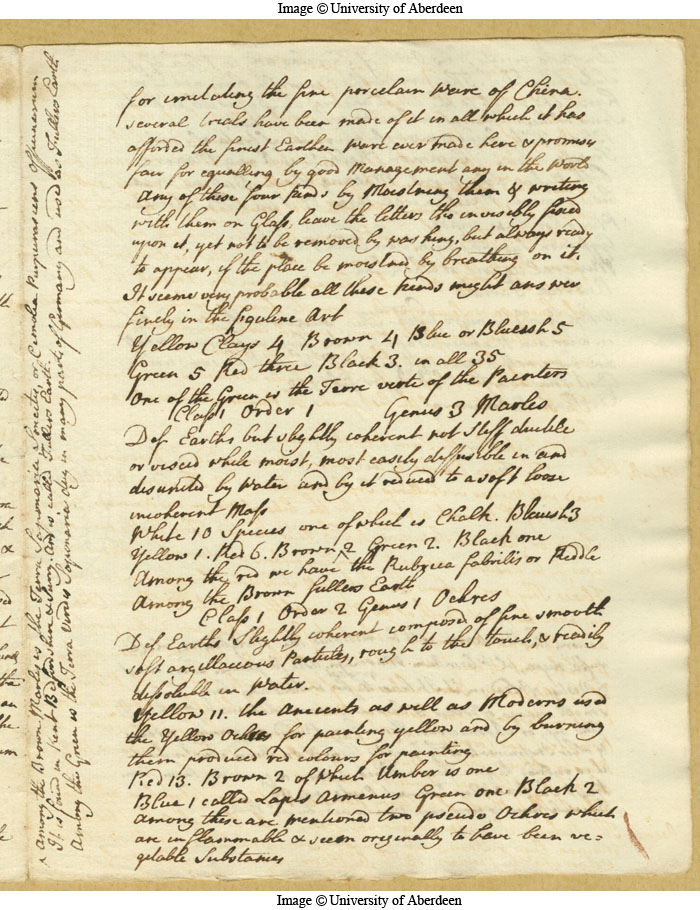 Image © University of Aberdeen
for imitating the fine porcelain ware of China.
several trials have been made of it in all which it has
afforded the finest Earthen Ware ever made here & promises
fair for equalling by good Management any in the World
Any of these four kinds by Moistning them & writing
with them on Glass, leave the letters tho invisibly fixed
upon it, yet not to be removed by washing, but always ready
to appear, if the place be moistned by breathing on it.
It seems very probable all these kinds might answer
finely in the figuline Art
Yellow Clays 4 Brown 4 Blue or Blueish 5
Green 5 Red three Black 3. in all 35
One of the Green is the Terre verte of the Painters
Class 1 Order 1 Genus 3 Marles
Def. Earths but slightly coherent not stiff ductile
or viscid while moist, most easily diffusible in and
disunited by Water and by it reduced to a soft loose
incoherent Mass
White 10 Species one of which is Chalk. Blueish 3
Yellow 1. Red 6. Brown 2 Green 2. Black one
Among the red we have the Rubrica fabrilis or Reddle
Among the Brown fullers Earth
Class 1 Order 2 Genus 1 Ochres
Def Earths Slightly coherent composed of fine smooth
soft argillaceous Particles, rough to the touch, & readily
dissoluble in Water.
Yellow 11. the Ancients as well as Moderns used
the Yellow Ochres for painting yellow and by burning
them produced red colours for painting
Red 13. Brown 2 of which Umber is one
Blue 1 called Lapis Armenus Green one Black 2
among these are mentioned two pseudo Ochres which
are inflammable & seem originally to have been ve-
getable Substances
x Among the Brown Marles is the Terra Saponaria or Cimolia Purpurascens Officinarum
It is found in Kent Bedfordshire & Surry. And is called Fullers Earth.
Among the Green is the Terra Viridis Saponaria dug in many parts of Germany and used as Fullers Earth
Image © University of Aberdeen